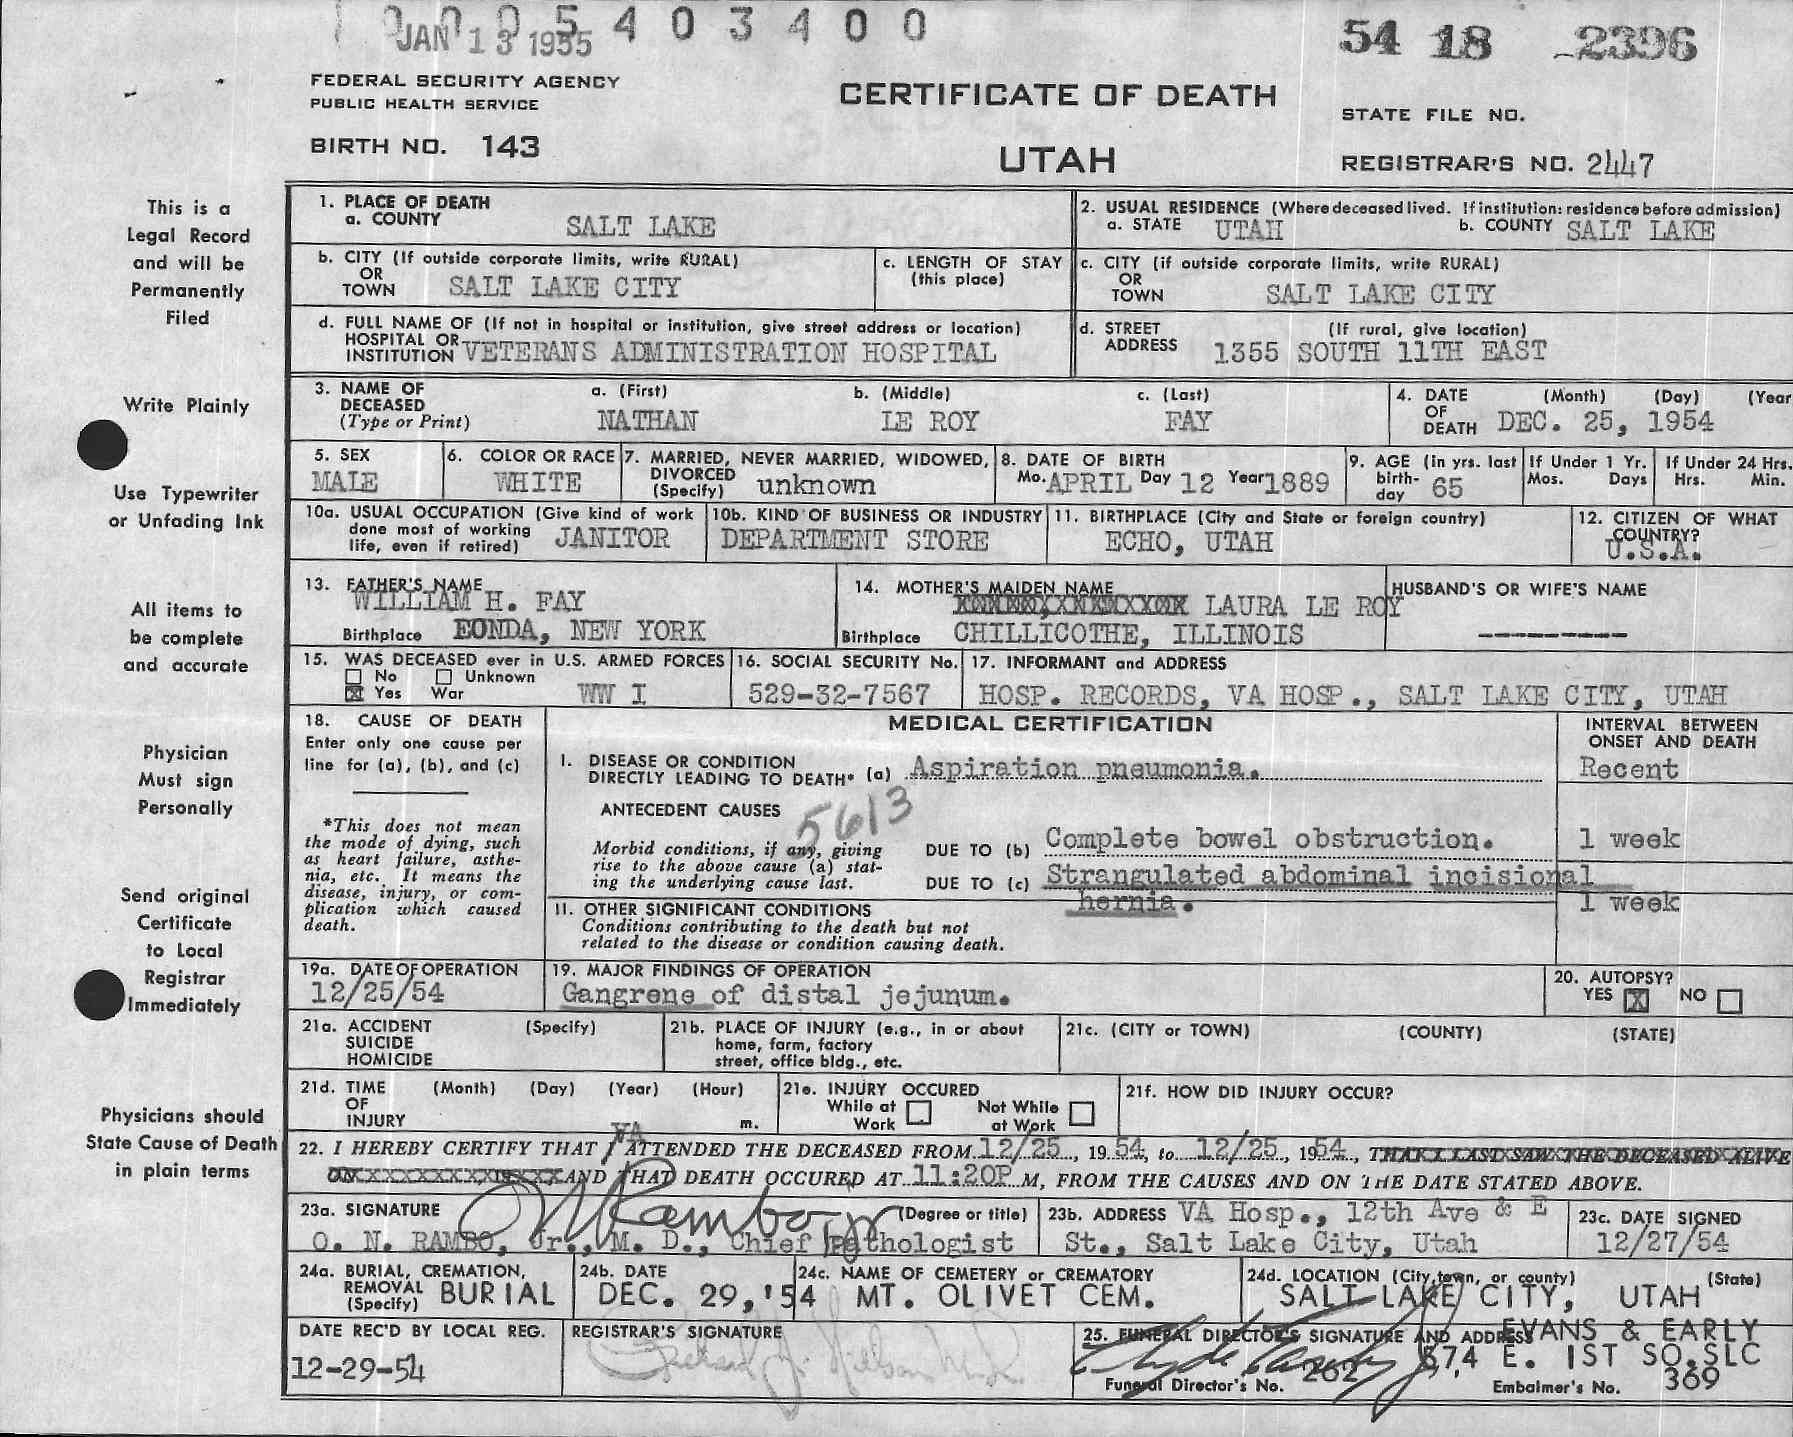 0 0 0 5 4 0 3 4 0 0
JAN 13 1955
54 18 2396
FEDERAL SECURITY AGENCY
PUBLIC HEALTH SERVICE
CERTIFICATE OF DEATH
STATE FILE NO.
BIRTH NO. 143
UTAH
REGISTRAR'S NO. 2447
This is a
Legal Record
and will be
Permanently
Filed
Write Plainly
Use Typewriter
or Unfading Ink
All items to
be complete
and accurate
Physician
Must sign
Personally
Send original
Certificate
to Local
Registrar
Immediately
Physicians should
State Cause of Death
in plain terms
1. PLACE OF DEATH
a. COUNTY SALT LAKE
2. USUAL RESIDENCE (Where deceased lived. If institution: residence before admission)
a. STATE UTAH b. COUNTY SALT LAKE
b. CITY (If outside corporate limits, write RURAL)
OR
TOWN SALT LAKE CITY
c. LENGTH OF STAY
(this place)
c. CITY (if outside corporate limits, write RURAL)
OR
TOWN SALT LAKE CITY
d. FULL NAME OF (If not in hospital or institution, give street address or location)
HOSPITAL OR
INSTITUTION VETERANS ADMINISTRATION HOSPITAL
d. STREET (If rural, give location)
ADDRESS 1355 SOUTH 11TH EAST
3. NAME OF a. (First) b. (Middle) c. (Last)
DECEASED
(Type or Print) NATHAN LE ROY FAY
4. DATE (Month) (Day) (Year
OF
DEATH DEC. 25, 1954
5. SEX
MALE
6. COLOR OR RACE
WHITE
7. MARRIED, NEVER MARRIED, WIDOWED,
DIVORCED
(Specify) unknown
8. DATE OF BIRTH
Mo. APRIL Day 12 Year 1889
9. AGE (in yrs. last
birth-
day 65
If Under 1 Yr.
Mos. Days
If Under 24 Hrs.
Hrs. Min.
10a. USUAL OCCUPATION (Give kind of work
done most of working
life, even if retired) JANITOR
10b. KIND OF BUSINESS OR INDUSTRY
DEPARTMENT STORE
11. BIRTHPLACE (City and State or foreign country)
ECHO, UTAH
12. CITIZEN OF WHAT
COUNTRY?
U.S.A.
13. FATHER'S NAME
WILLIAM H. FAY
Birthplace EONDA, NEW YORK
14. MOTHER'S MAIDEN NAME
LAURA LE ROY
Birthplace CHILLICOTHE, ILLINOIS
HUSBAND'S OR WIFE'S NAME
----------
15. WAS DECEASED ever in U.S. ARMED FORCES
No Unknown
X Yes War WW I
16. SOCIAL SECURITY No.
529-32-7567
17. INFORMANT and ADDRESS
HOSP. RECORDS, VA HOSP., SALT LAKE CITY, UTAH
18. CAUSE OF DEATH
Enter only one cause per
line for (a), (b), and (c)
*This does not mean
the mode of dying, such
as heart failure, asthe-
nia, etc. It means the
disease, injury, or com-
plication which caused
death.
MEDICAL CERTIFICATION
INTERVAL BETWEEN
ONSET AND DEATH
I. DISEASE OR CONDITION
DIRECTLY LEADING TO DEATH* (a) Aspiration pneumonia. Recent
ANTECEDENT CAUSES
5613
Morbid conditions, if any, giving
rise to the above cause (a) stat-
ing the underlying cause last.
DUE TO (b) Complete bowel obstruction. 1 week
DUE TO (c) Strangulated abdominal incisional
hernia. 1 week
II. OTHER SIGNIFICANT CONDITIONS
Conditions contributing to the death but not
related to the disease or condition causing death.
19a. DATE OF OPERATION
12/25/54
19. MAJOR FINDINGS OF OPERATION
Gangrene of distal jejunum.
20. AUTOPSY?
YES X NO
21a. ACCIDENT (Specify)
SUICIDE
HOMICIDE
21b. PLACE OF INJURY (e.g., in or about
home, farm, factory
street, office bldg., etc.
21c. (CITY or TOWN) (COUNTY) (STATE)
21d. TIME (Month) (Day) (Year) (Hour)
OF
INJURY m.
21e. INJURY OCCURED
While at Not While
Work at Work
21f. HOW DID INJURY OCCUR?
22. I HEREBY CERTIFY THAT I VA ATTENDED THE DECEASED FROM 12/25, 1954, to 12/25, 1954, THAT I LAST SAW THE DECEASED ALIVE
AND THAT DEATH OCCURED AT 11:20P M, FROM THE CAUSES AND ON THE DATE STATED ABOVE.
23a. SIGNATURE ON Rambo Jr (Degree or title)
O. N. RAMBO, Jr., M. D., Chief Pathologist
23b. ADDRESS VA Hosp., 12th Ave & E
St., Salt Lake City, Utah
23c. DATE SIGNED
12/27/54
24a. BURIAL, CREMATION,
REMOVAL
(Specify) BURIAL
24b. DATE
DEC. 29, '54
24c. NAME OF CEMETERY or CREMATORY
MT. OLIVET CEM.
24d. LOCATION (City, town, or county) (State)
SALT LAKE CITY, UTAH
DATE REC'D BY LOCAL REG.
12-29-54
REGISTRAR'S SIGNATURE
25. FUNERAL DIRECTOR'S SIGNATURE AND ADDRESS EVANS & EARLY
574 E. 1ST SO. SLC
Funeral Director's No. 262 Embalmer's No. 369